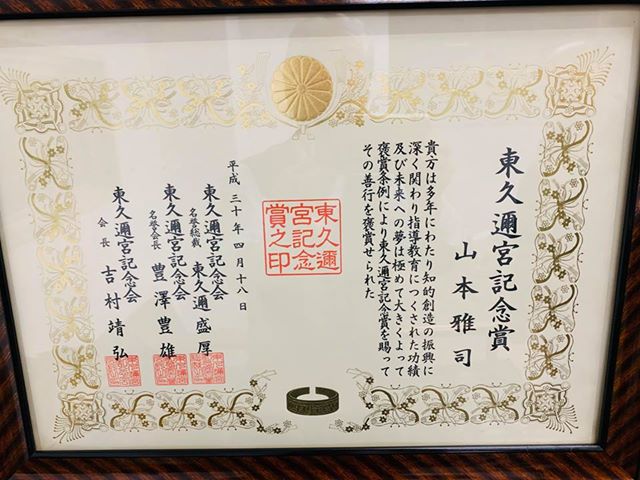 東久邇宮記念賞
山本雅司
貴方は多年にわたり知的創造の振興に
深く関わり指導教育につくされた功績
及び未来への夢は極めて大きくよって
褒賞条例により東久邇宮記念賞を賜って
その善行を褒賞せられた
東久邇
宮記念
賞之印
平成三十年四月十八日
東久邇宮記念会
名誉総裁 東久邇盛厚
東久邇宮記念会
名誉会長 豊澤豊雄
東久邇宮記念会
会長 吉村靖弘